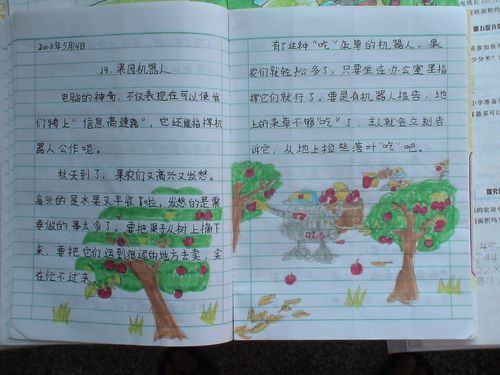 2008年5月14日
24 果园机器人
电脑的神奇,不仅表现在可以使我
们跨上"信息高速路",它还能指挥机
器人公作呢。
秋天到了,果农们又高兴又发愁。
高兴的是水果又丰收了啦,发愁的是需
要做的事太多了。要把果子从树上摘下
来,要把它们运到很远的地方去卖,实
在忙不过来
有了这种"吃"杂草的机器人,果
农们就轻松多了,只要坐在办公室里指
挥它们就行了。要是有机器人报告,地
上的杂草不够"吃"了,主人就会立刻告
诉它,从地上捡些落叶"吃"吧。